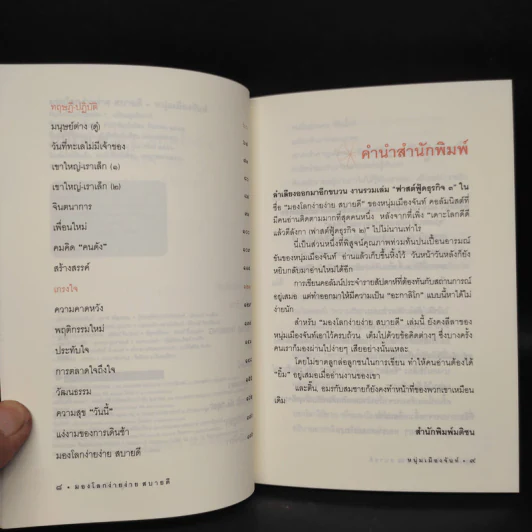 ทฤษฎี-ปฏิบัติ
มนุษย์ต่าง (คู่)
วันที่ทะเลไม่มีเจ้าของ
เขาใหญ่-เราเล็ก (๑)
เขาใหญ่-เราเล็ก (๒)
จินตนาการ
เพื่อนใหม่
คมคิด "คนดัง"
สร้างสรรค์
เกรงใจ
ความคาดหวัง
พฤติกรรมใหม่
ประทับใจ
การตลาดใจถึงใจ
วัฒนธรรม
ความสุข "วันนี้"
แง่งามของการเดินช้า
มองโลกง่ายง่าย สบายดี
๘ • มองโลกง่ายง่าย สบายดี
คำนำสำนักพิมพ์
ลำเลียงออกมาอีกขบวน งานรวมเล่ม "ฟาสต์ฟู้ดธุรกิจ ๓" ใน
ชื่อ "มองโลกง่ายง่าย สบายดี" ของหนุ่มเมืองจันท์ คอลัมนิสต์ที่
มีคนอ่านติดตามมากที่สุดคนหนึ่ง หลังจากที่เพิ่ง "เคาะโลกดีดี
แล้วตีลังกา (ฟาสต์ฟู้ดธุรกิจ ๒)" ไปไม่นานเท่าไร
นี่เป็นส่วนหนึ่งที่พิสูจน์คุณภาพท่วมท้นปนเปื้อนอารมณ์
ขันของหนุ่มเมืองจันท์ อ่านแล้วเก็บขึ้นหิ้งไว้ วันหน้าวันหลังก็ยัง
หยิบกลับมาอ่านใหม่ได้อีก
การเขียนคอลัมน์ประจำรายสัปดาห์ที่ต้องทันกับสถานการณ์
อยู่เสมอ แต่ทำออกมาให้มีความเป็น "อะกาลิโก" แบบนี้หาได้ไม่
ง่ายนัก
สำหรับ "มองโลกง่ายง่าย สบายดี" เล่มนี้ ยังคงลีลาของ
หนุ่มเมืองจันท์เอาไว้ครบถ้วน เต็มไปด้วยข้อคิดต่างๆ ซึ่งบางครั้ง
คนเราก็มองผ่านไปง่ายๆ เสียอย่างนั้นแหละ
โดยไม่ขาดลูกล่อลูกชนในการเขียน ทำให้คนอ่านต้องได้
"ยิ้ม" อยู่เสมอเมื่ออ่านงานของเขา
และตี๋น อมรกับสมชายก็ยังคงทำหน้าที่ของพวกเขาเหมือน
เดิม
สำนักพิมพ์มติชน
หนุ่มเมืองจันท์ • ๙